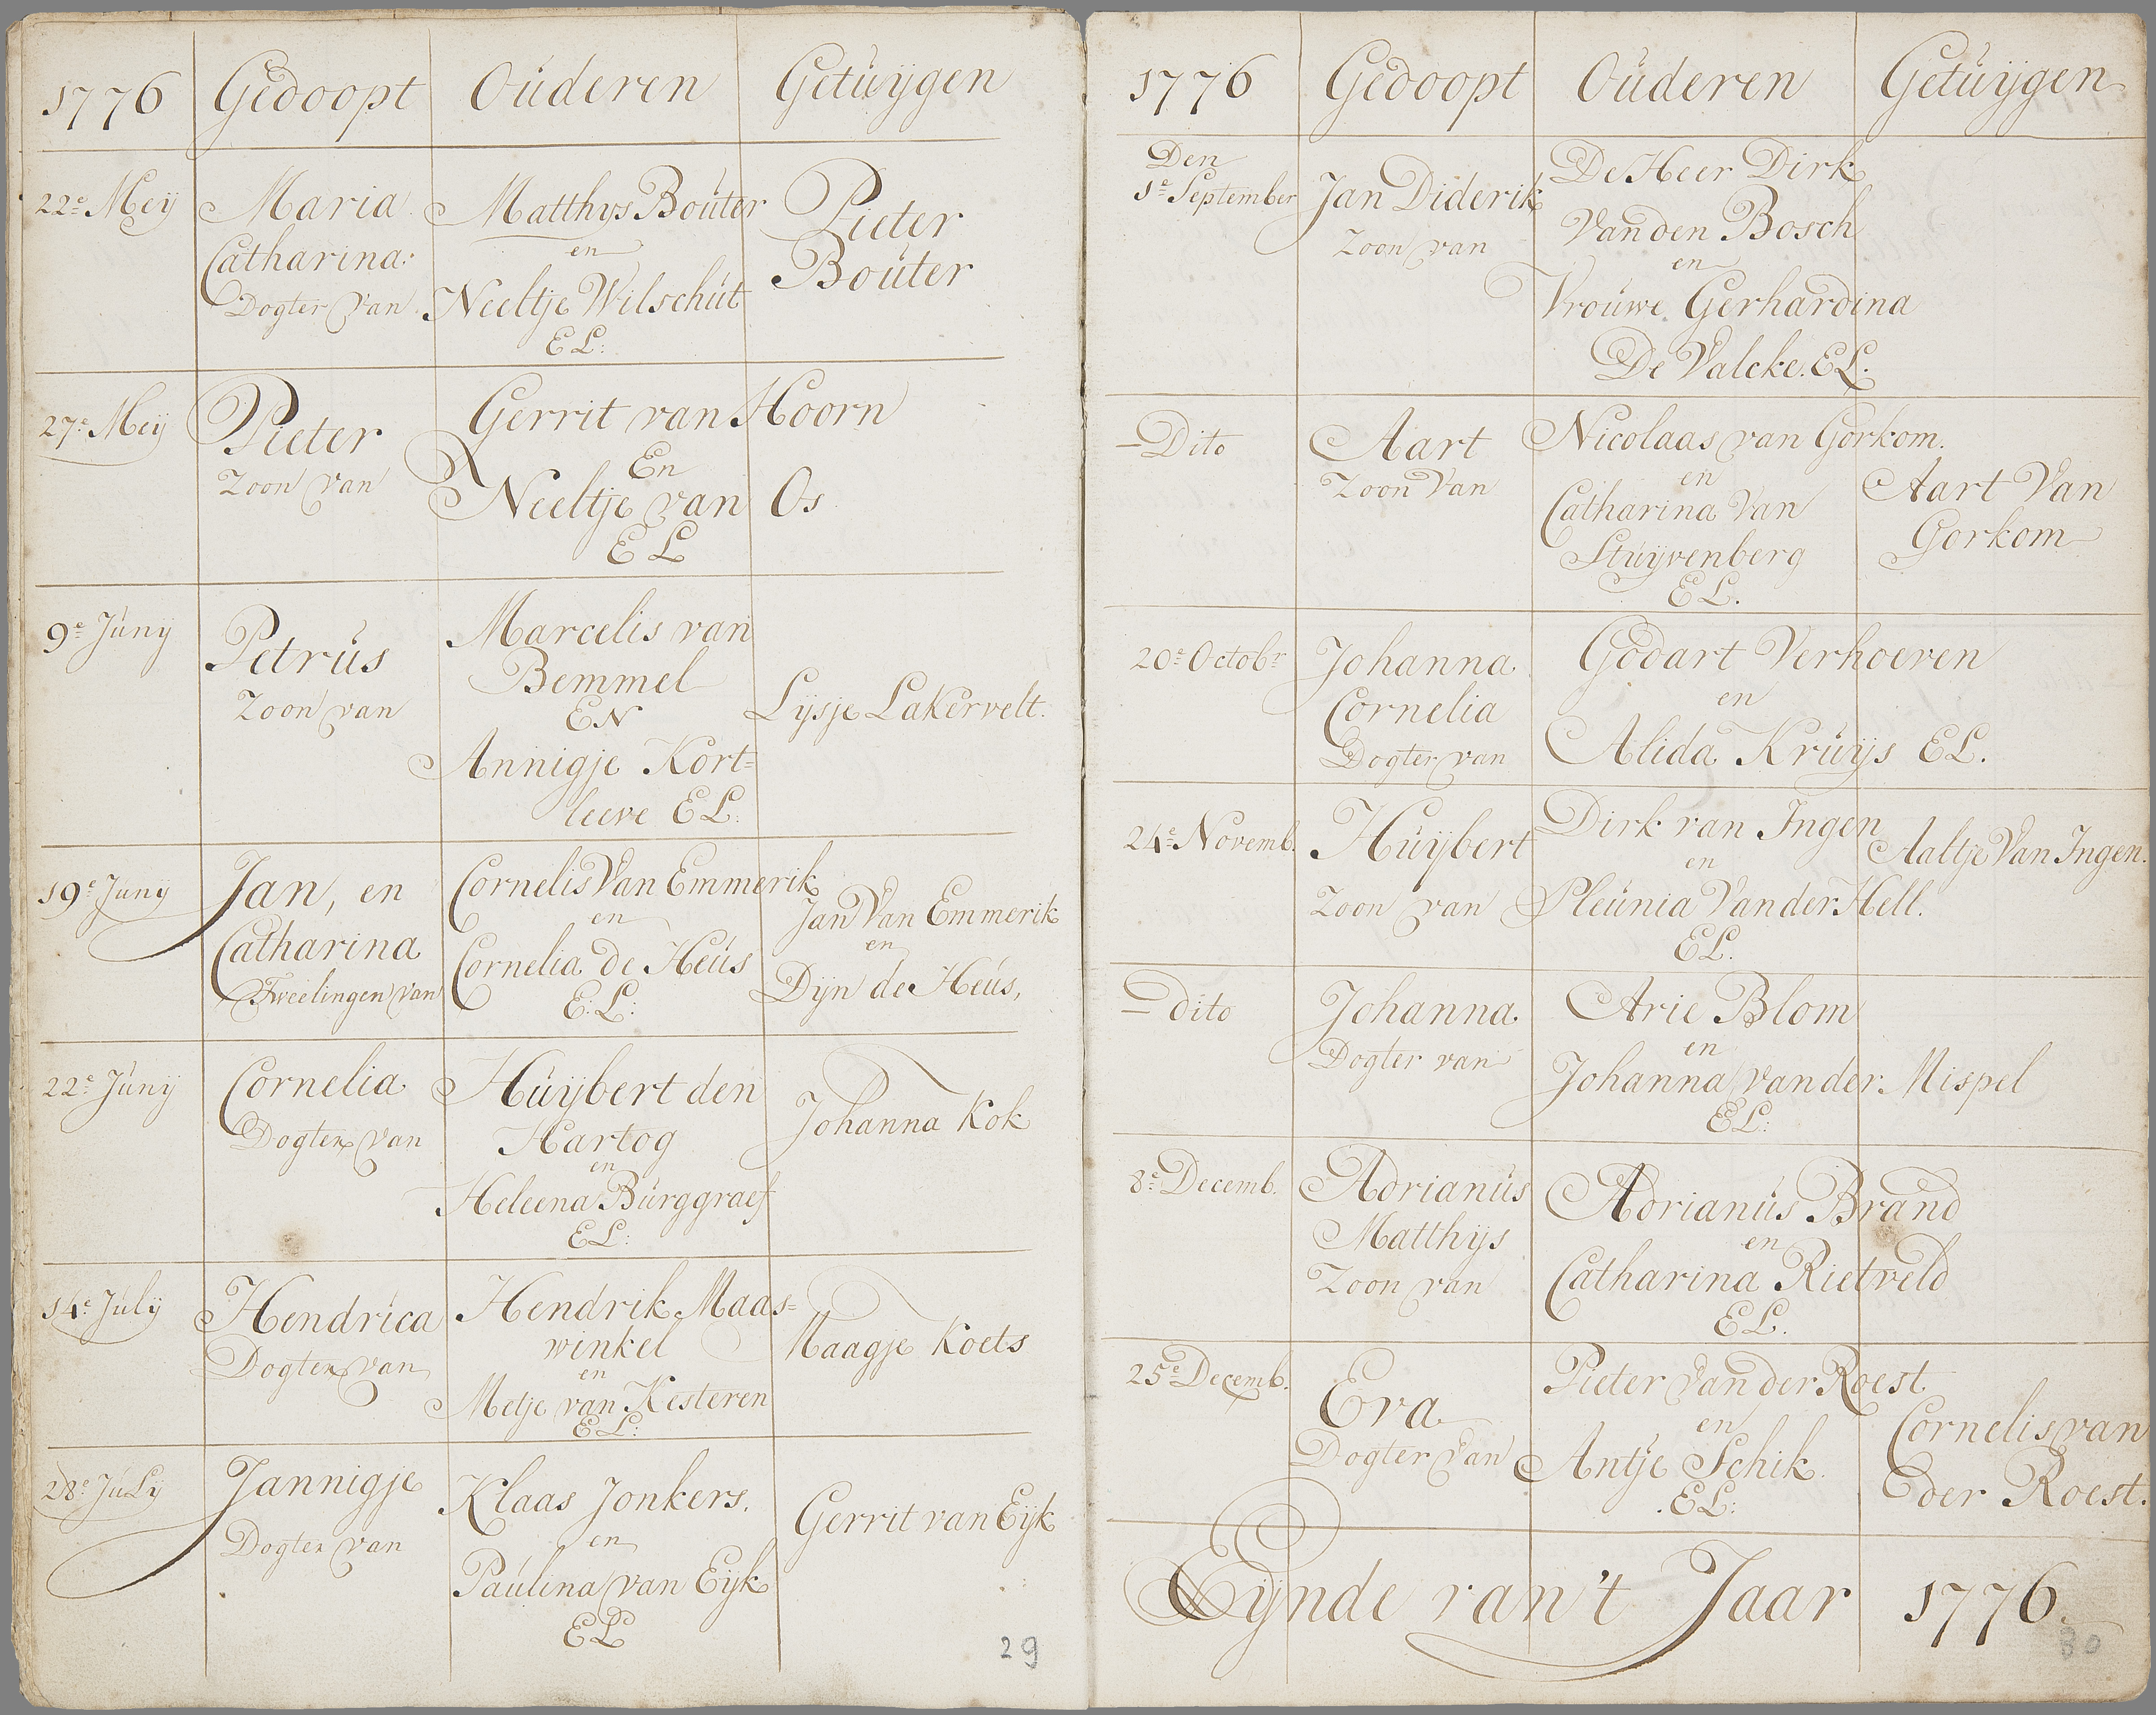 1776 Gedoopt Ouderen Getuijgen
22e Meij Maria Matthys Bouter Pieter
Catharina: en Bouter
Dogter van Neeltje Wilschut
E L:
27e Meij Pieter Gerrit van Hoorn
Zoon van En
Neeltje van Os
E L
9e Junij Petrus Marcelis van
Zoon van Bemmel Lijsje Lakervelt.
EN
Annigje Kort=
leeve E L:
19e Junij Jan, en Cornelis Van Emmerik Jan Van Emmerik
Catharina en en
Tweelingen van Cornelia de Heus Dijn de Heus,
E: L:
22e Junij Cornelia Huijbert den Johanna Kok
Dogter van Hartog
en
Heleena Burggraef
E L:
14e Julij Hendrica Hendrik Maas= Maagje Koets
Dogter van winkel
en
Metje van Kesteren
E L:
28e JuLij Jannigje Klaas Jonkers. Gerrit van Eijk
Dogter van en
Paulina van Eijk
E L
29
1776 Gedoopt Ouderen Getuijgen
Den
1e September Jan Diderik De Heer Dirk
Zoon van Van den Bosch
en
Vrouwe Gerhardina
De Valcke. E L.
Dito Aart Nicolaas van Gorkom. Aart Van
Zoon Van en Gorkom
Catharina Van
Stuijvenberg
E L.
20e Octobr Johanna Godart Verhoeven
Cornelia en
Dogter van Alida Kruijs E L.
24e Novemb. Huijbert Dirk van Ingen Aaltje Van Ingen.
Zoon van en
Pleunia Van der Hell.
E L.
dito Johanna Arie Blom
Dogter van en
Johanna van der Mispel
E L:
8e Decemb. Adrianus Adrianus Brand
Matthijs en
Zoon van Catharina Rietveld
E L.
25e Decemb. Eva Pieter van der Roest Cornelis van
Dogter van en der Roest.
Antje Schik.
E L:
Eijnde van 't Jaar 1776.
30